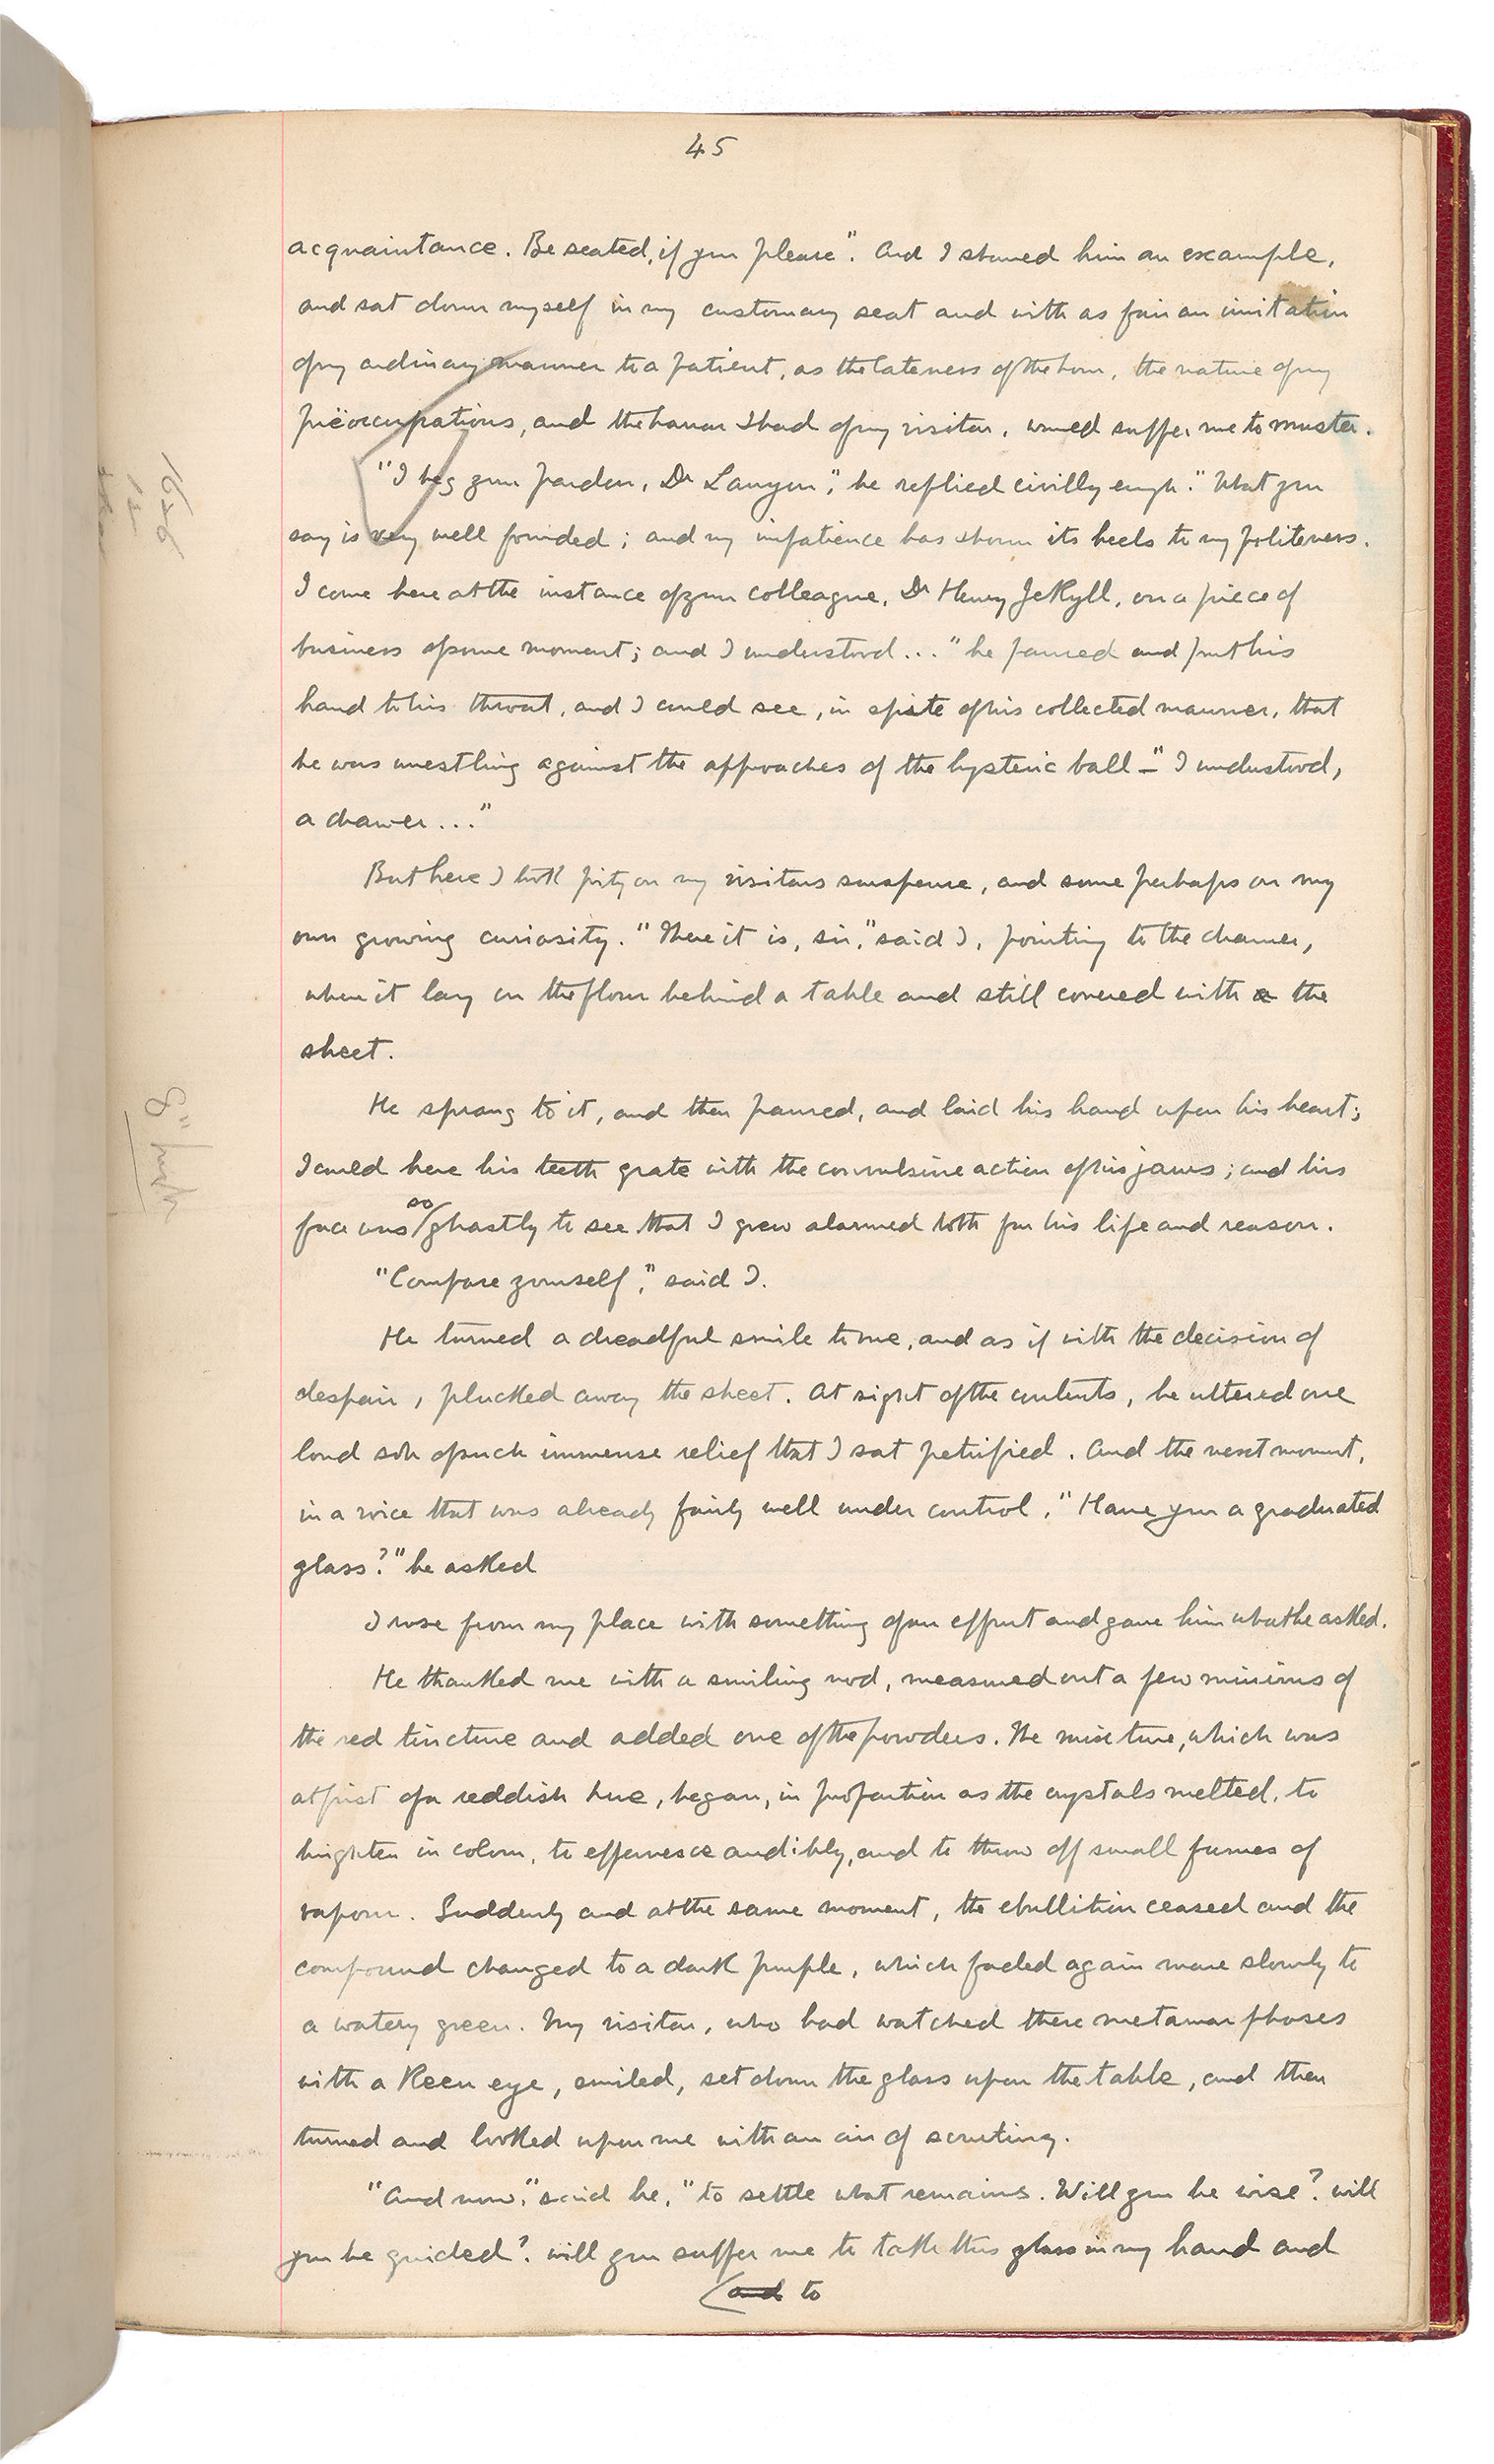 45
acquaintance. Be seated, if you please". And I showed him an example,
and sat down myself in my customary seat and with as fair an imitation
of my ordinary manner to a patient, as the lateness of the hour, the nature of my
preoccupations, and the horror I had of my visitor, would suffer me to muster.
"I beg your pardon, Dr Lanyon", he replied civilly enough. "What you
say is very well founded; and my impatience has shown its heels to my politeness.
I come here at the instance of your colleague, Dr Henry Jekyll, on a piece of
business of some moment; and I understood..." he paused and put his
hand to his throat, and I could see, in spite of his collected manner, that
he was wrestling against the approaches of the hysteric ball – "I understood,
a drawer..."
But here I took pity on my visitors suspense, and some perhaps on my
own growing curiosity. "There it is, sir," said I, pointing to the drawer,
where it lay on the floor behind a table and still covered with a the
sheet.
He sprang to it, and then paused, and laid his hand upon his heart;
I could here his teeth grate with the convulsive action of his jaws; and his
face was so ghastly to see that I grew alarmed both for his life and reason.
"Compose yourself," said I.
He turned a dreadful smile to me, and as if with the decision of
despair, plucked away the sheet. At sight of the contents, he uttered one
loud sob of such immense relief that I sat petrified. And the next moment,
in a voice that was already fairly well under control, "Have you a graduated
glass?" he asked
I rose from my place with something of an effort and gave him what he asked.
He thanked me with a smiling nod, measured out a few minims of
the red tincture and added one of the powders. The mixture, which was
at first of a reddish hue, began, in proportion as the crystals melted, to
brighten in colour, to effervesce audibly, and to throw off small fumes of
vapour. Suddenly and at the same moment, the ebullition ceased and the
compound changed to a dark purple, which faded again more slowly to
a watery green. My visitor, who had watched these metamorphoses
with a keen eye, smiled, set down the glass upon the table, and then
turned and looked upon me with an air of scrutiny.
"And now," said he, "to settle what remains. Will you be wise? will
you be guided? will you suffer me to take this glass in my hand and
(and to